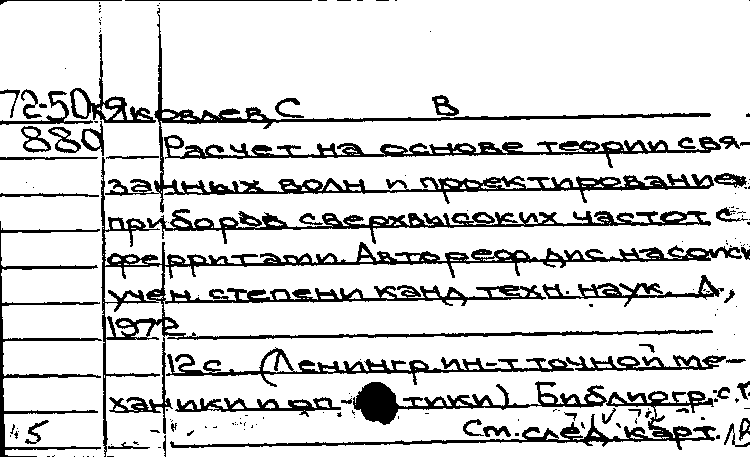 72-50к Яковлев, С В
880 Расчет на основе теории свя-
занных волн и проектирование
приборов сверхвысоких частот с
ферритами. Автореф. дис. на соиск
учен. степени канд. техн. наук. Л.,
1972.
12 с. (Ленингр. ин-т точной ме-
ханики и оп- тики) Библиогр.: с.
45 См. след. карт.